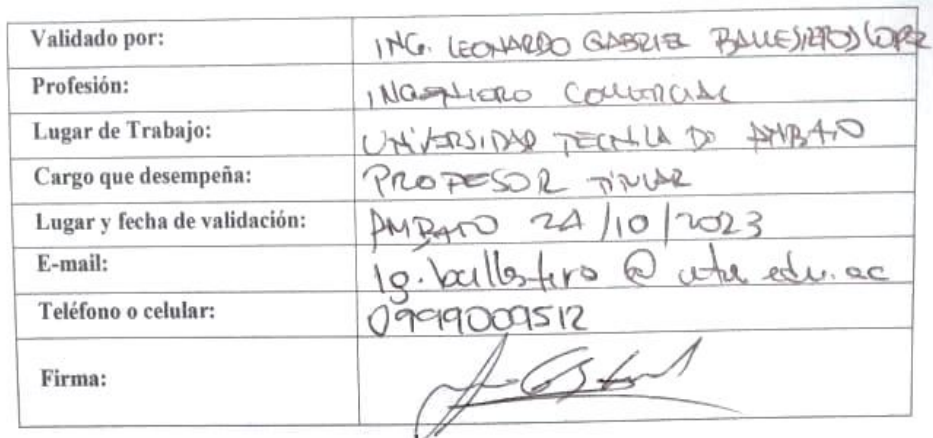 Validado por: ING. LEONARDO GABRIEL BALLESTEROS LOPEZ
Profesión: INGENIERO COMERCIAL
Lugar de Trabajo: UNIVERSIDAD TECNICA DE AMBATO
Cargo que desempeña: PROFESOR TITULAR
Lugar y fecha de validación: AMBATO 24/10/2023
E-mail: lg.ballestero @ uta edu. ec
Teléfono o celular: 0999009512
Firma: